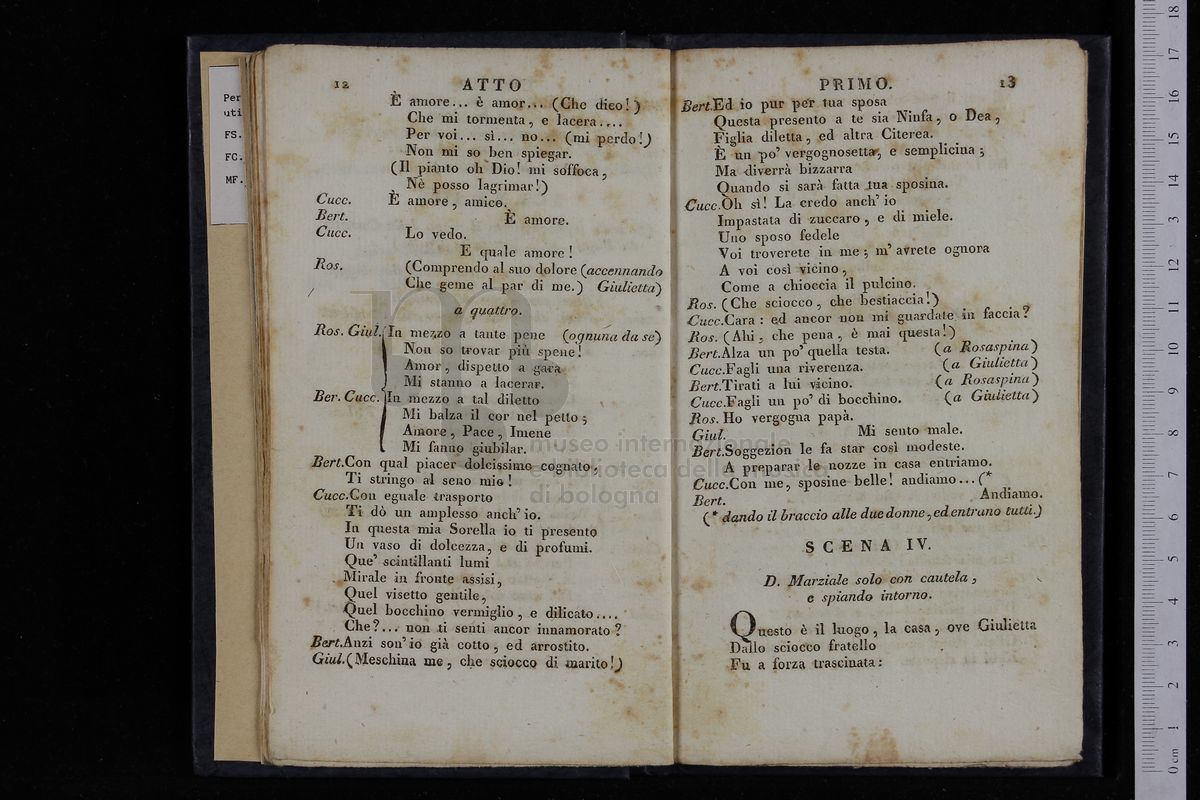 Per
uti
FS.
FC.
MF.
12 ATTO
È amore... è amor... (Che dico!)
Che mi tormenta, e lacera....
Per voi... sì... no... (mi perdo!)
Non mi so ben spiegar.
(Il pianto oh Dio! mi soffoca,
Nè posso lagrimar!)
Cucc. È amore, amico.
Bert. È amore.
Cucc. Lo vedo.
E quale amore!
Ros. (Comprendo al suo dolore (accennando
Che geme al par di me.) Giulietta)
a quattro.
Ros. Giul. In mezzo a tante pene (ognuna da se)
Non so trovar più spene!
Amor, dispetto a gara
Mi stanno a lacerar.
Ber. Cucc. In mezzo a tal diletto
Mi balza il cor nel petto;
Amore, Pace, Imene
Mi fanno giubilar.
Bert. Con qual piacer dolcissimo cognato,
Ti stringo al seno mio!
Cucc. Con eguale trasporto
Ti dò un amplesso anch' io.
In questa mia Sorella io ti presento
Un vaso di dolcezza, e di profumi.
Que' scintillanti lumi
Mirale in fronte assisi,
Quel visetto gentile,
Quel bocchino vermiglio, e dilicato....
Che?... non ti senti ancor innamorato?
Bert. Anzi son' io già cotto, ed arrostito.
Giul. (Meschina me, che sciocco di marito!)
PRIMO. 13
Bert. Ed io pur per tua sposa
Questa presento a te sia Ninfa, o Dea,
Figlia diletta, ed altra Citerea.
È un po' vergognosetta, e semplicina;
Ma diverrà bizzarra
Quando si sarà fatta tua sposina.
Cucc. Oh sì! La credo anch' io
Impastata di zuccaro, e di miele.
Uno sposo fedele
Voi troverete in me; m' avrete ognora
A voi così vicino,
Come a chioccia il pulcino.
Ros. (Che sciocco, che bestiaccia!)
Cucc. Cara: ed ancor non mi guardate in faccia?
Ros. (Ahi, che pena, è mai questa!)
Bert. Alza un po' quella testa. (a Rosaspina)
Cucc. Fagli una riverenza. (a Giulietta)
Bert. Tirati a lui vicino. (a Rosaspina)
Cucc. Fagli un po' di bocchino. (a Giulietta)
Ros. Ho vergogna papà.
Giul. Mi sento male.
Bert. Soggezion le fa star così modeste.
A preparar le nozze in casa entriamo.
Cucc. Con me, sposine belle! andiamo... (*
Bert. Andiamo.
(* dando il braccio alle due donne, ed entrano tutti.)
SCENA IV.
D. Marziale solo con cautela,
e spiando intorno.
Questo è il luogo, la casa, ove Giulietta
Dallo sciocco fratello
Fu a forza trascinata:
museo internazionale
e biblioteca della musica
di bologna
0 cm 1 2 3 4 5 6 7 8 9 10 11 12 13 14 15 16 17 18